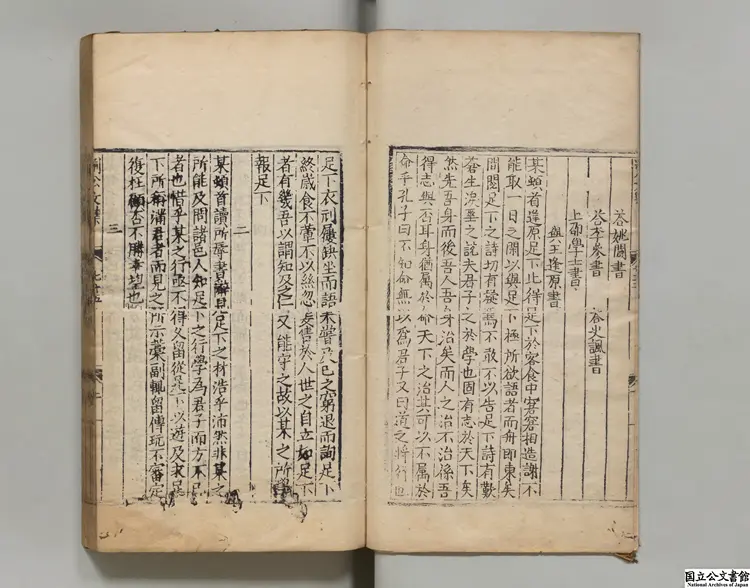 荅姚闢書
荅李參書 荅史諷書
上邵學士書
與王逢原書
某頓首逢原足下比得足下於客食中窘窘相造謝不
能取一日之閑以與足下極所欲語者而舟即東矣
間閱足下之詩切有疑焉不敢不以告足下詩有歎
蒼生淚垂之說夫君子之於學也固有志於天下矣
然先吾身而後吾人吾身治矣而人之治不治係吾
得志與否耳身猶属於命天下之治其可以不属於
命乎孔子曰不知命無以爲君子又曰道之將行也
足下衣刓屨缺坐而語未嘗及已之窮退而詢足下
終歲食不葷不以絲忽妄售於人世之自立如足下
者有幾吾以謂知及之仁又能守之故以某之所學
報足下
二
某頓首讀所辱書辭見足下之材浩乎沛然非某之
所能及問諸邑人知足下之行學為君子而方不已
者也惜乎某之行亟不得久留從足下以遊及求足
下所稱滿君者而見之所示藁副輒留傳玩不審定
復枉顧否不勝幸望也
三
国立公文書館
National Archives of Japan